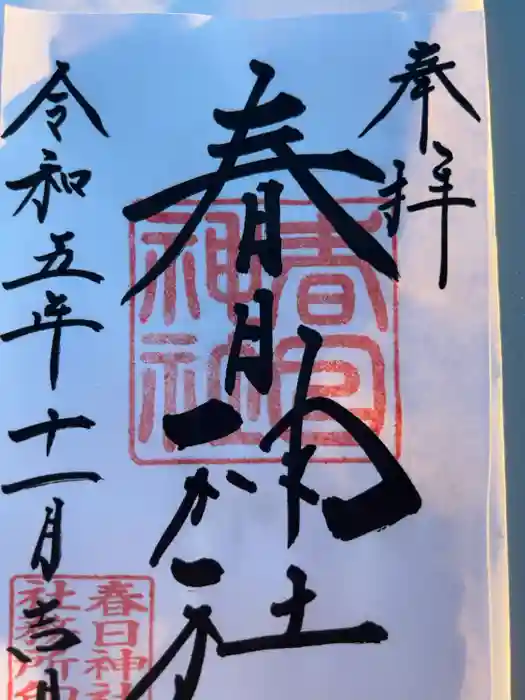 奉拝
春日神社
令和五年十一月吉日
春日神社
春日神社
社務所印